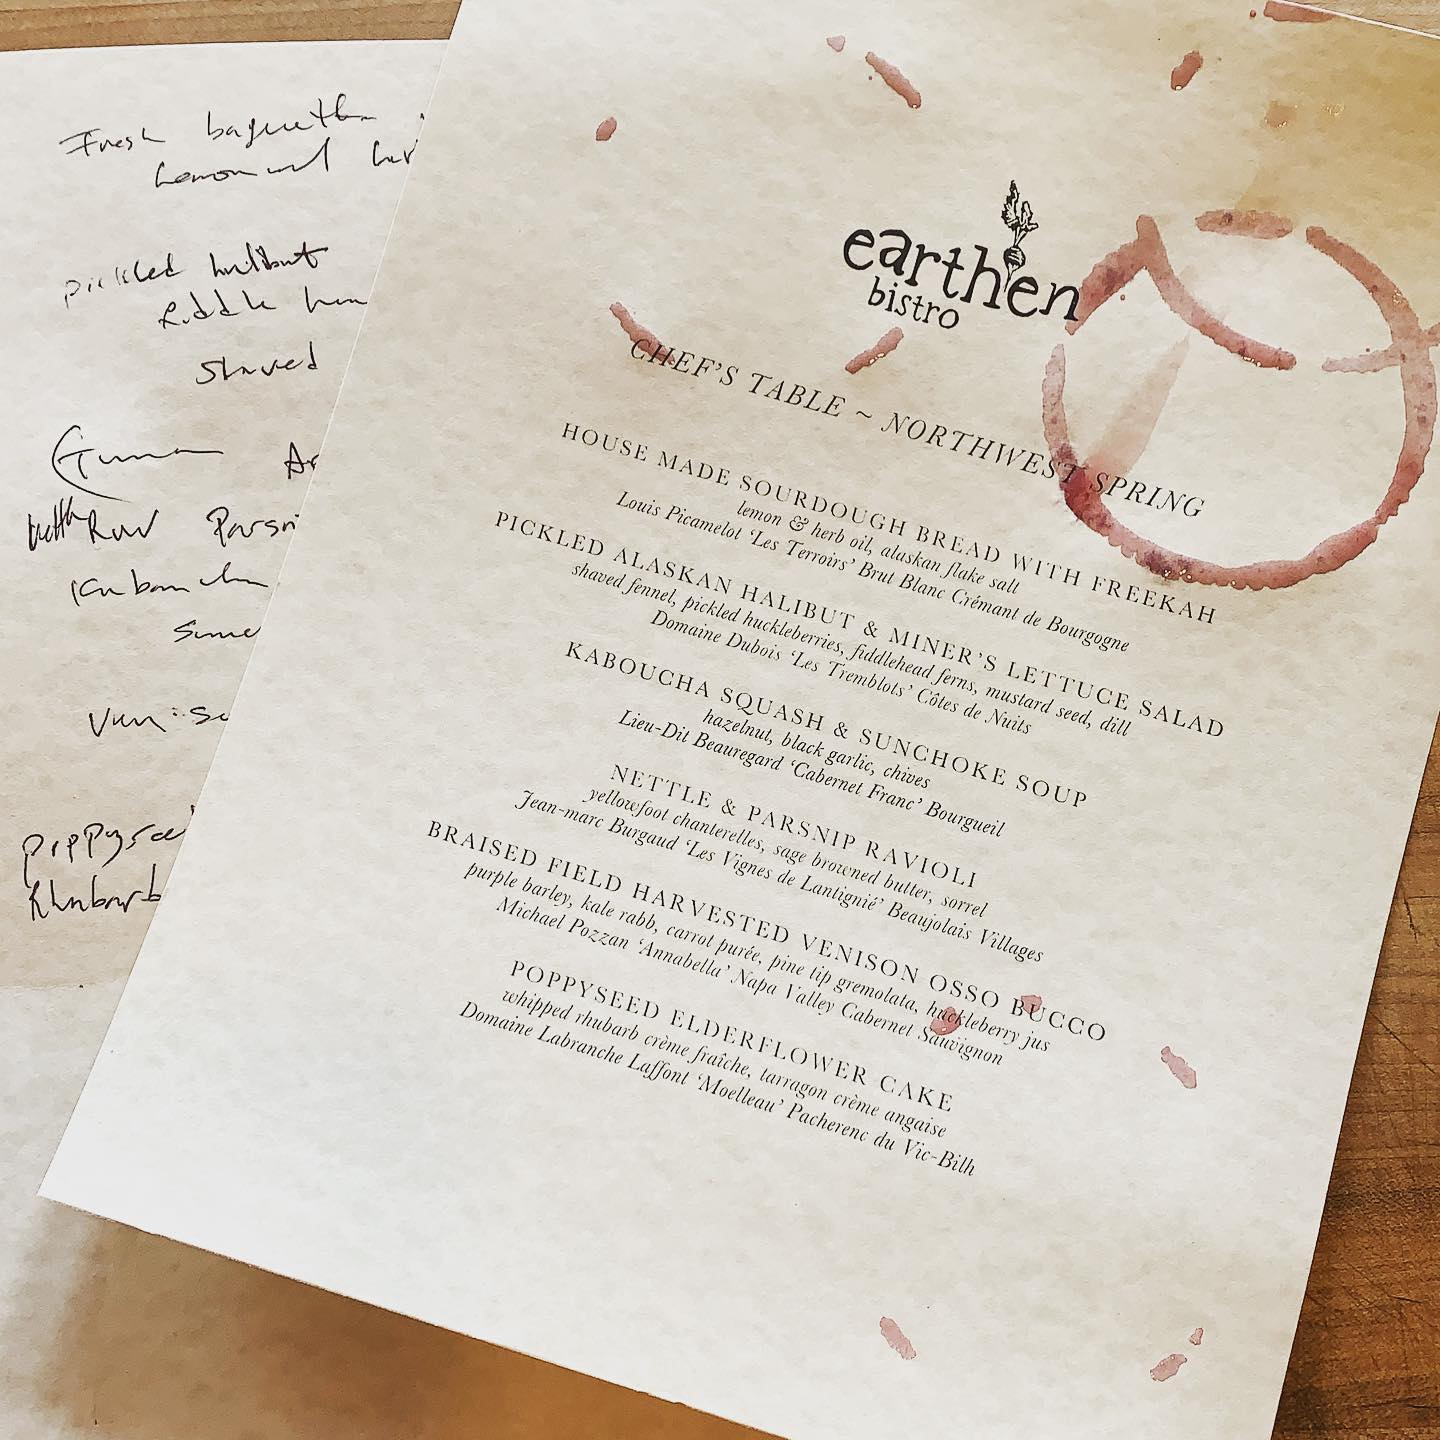 Fresh
Lemon
pickled halibut
shaved
Raw Parsni
Poppysee
Rhubarb
earthen
bistro
CHEF'S TABLE ~ NORTHWEST SPRING
HOUSE MADE SOURDOUGH BREAD WITH FREEKAH
lemon & herb oil, alaskan flake salt
Louis Picamelot 'Les Terroirs' Brut Blanc Crémant de Bourgogne
PICKLED ALASKAN HALIBUT & MINER'S LETTUCE SALAD
shaved fennel, pickled huckleberries, fiddlehead ferns, mustard seed, dill
Domaine Dubois 'Les Tremblots' Côtes de Nuits
KABOUCHA SQUASH & SUNCHOKE SOUP
hazelnut, black garlic, chives
Lieu-Dit Beauregard 'Cabernet Franc' Bourgueil
NETTLE & PARSNIP RAVIOLI
yellowfoot chanterelles, sage browned butter, sorrel
Jean-marc Burgaud 'Les Vignes de Lantignié' Beaujolais Villages
BRAISED FIELD HARVESTED VENISON OSSO BUCCO
purple barley, kale rabb, carrot purée, pine tip gremolata, huckleberry jus
Michael Pozzan 'Annabella' Napa Valley Cabernet Sauvignon
POPPYSEED ELDERFLOWER CAKE
whipped rhubarb crème fraîche, tarragon crème angaise
Domaine Labranche Laffont 'Moelleau' Pacherenc du Vic-Bilh